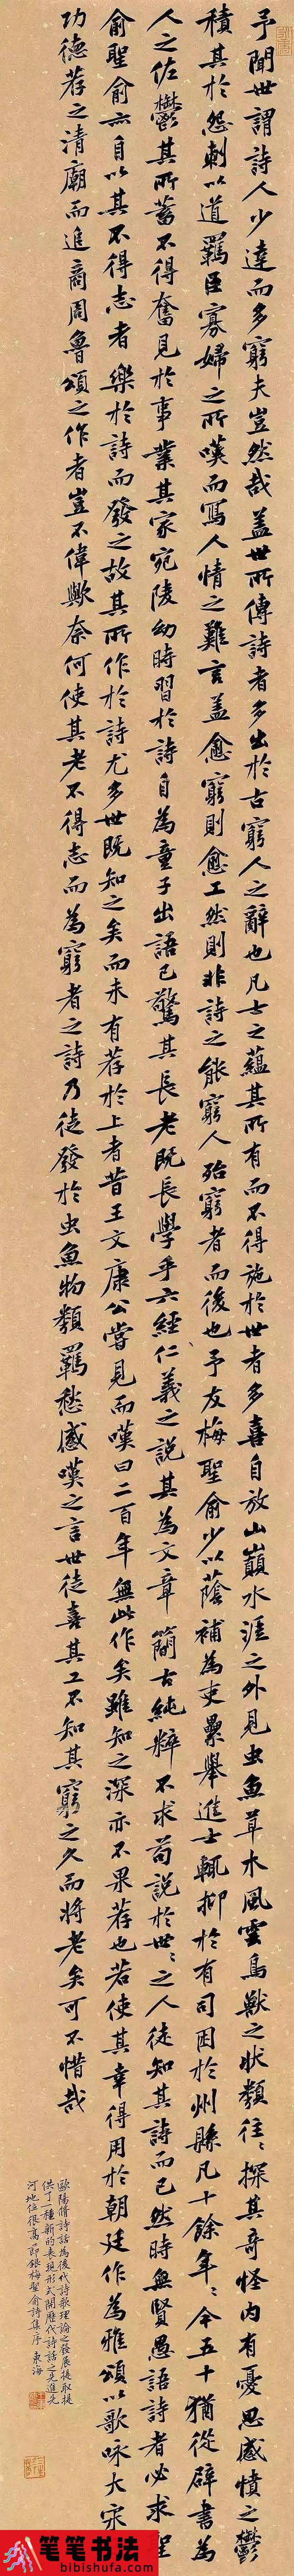 予聞世謂詩人少達而多窮夫豈然哉蓋世所傳詩者多出於古窮人之辭也凡士之蘊其所有而不得施於世者多喜自放山巔水涯之外見虫魚草木風雲鳥獸之狀類往〻探其奇怪內有憂思感憤之鬱
積其於怨刺以道羈臣寡婦之所嘆而寫人情之難言蓋愈窮則愈工然則非詩之能窮人殆窮者而後也予友梅聖俞少以蔭補為吏累舉進士輒抑於有司困於州縣凡十餘年〻今五十猶從辟書為
人之佐鬱其所蓄不得奮見於事業其家宛陵幼時習於詩自為童子出語已驚其長老既長學乎六經仁義之說其為文章簡古純粹不求苟說於世〻之人徒知其詩而已然時無賢愚語詩者必求聖
俞聖俞亦自以其不得志者樂於詩而發之故其所作於詩尤多世既知之矣而未有荐於上者昔王文康公嘗見而嘆曰二百年無此作矣雖知之深亦不果荐也若使其幸得用於朝廷作為雅頌以歌咏大宋
功德荐之清廟而進商周魯頌之作者豈不偉歟奈何使其老不得志而為窮者之詩乃徒發於虫魚物類羈愁感嘆之言世徒喜其工不知其窮之久而將老矣可不惜哉
歐陽脩詩話為後代詩歌理論之發展提取提
供了一種新的表現形式開歷代詩話之先進先
河地位很高節錄梅聖俞詩集序 東海
笔笔书法
bibishufa.com